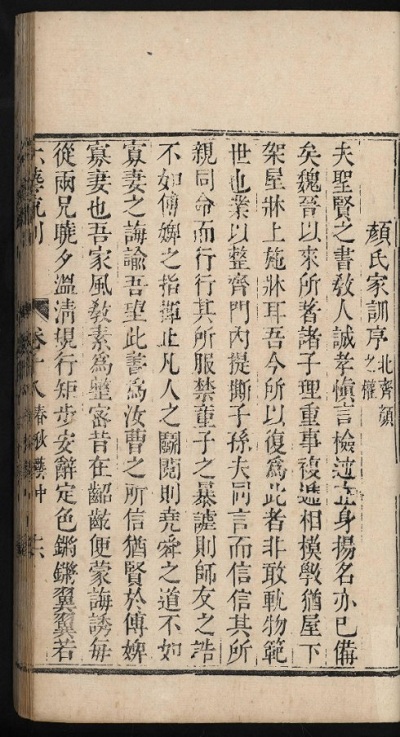 顏氏家訓序 北齊顏之權
夫聖賢之書教人誠孝慎言檢迹立身揚名亦已備
矣魏晉以來所著諸子理重事複遞相模斆猶屋下
架屋牀上施牀耳吾今所以復爲此者非敢軌物範
世也業以整齊門內提撕子孫夫同言而信信其所
親同命而行行其所服禁童子之暴謔則師友之誥
不如傅婢之指揮止凡人之鬬鬩則堯舜之道不如
寡妻之誨諭吾望此書爲汝曹之所信猶賢於傅婢
寡妻也吾家風敎素爲整密昔在齠齔便蒙誨誘每
從兩兄曉夕溫凊規行矩步安辭定色鏘鏘翼翼若
卷十八